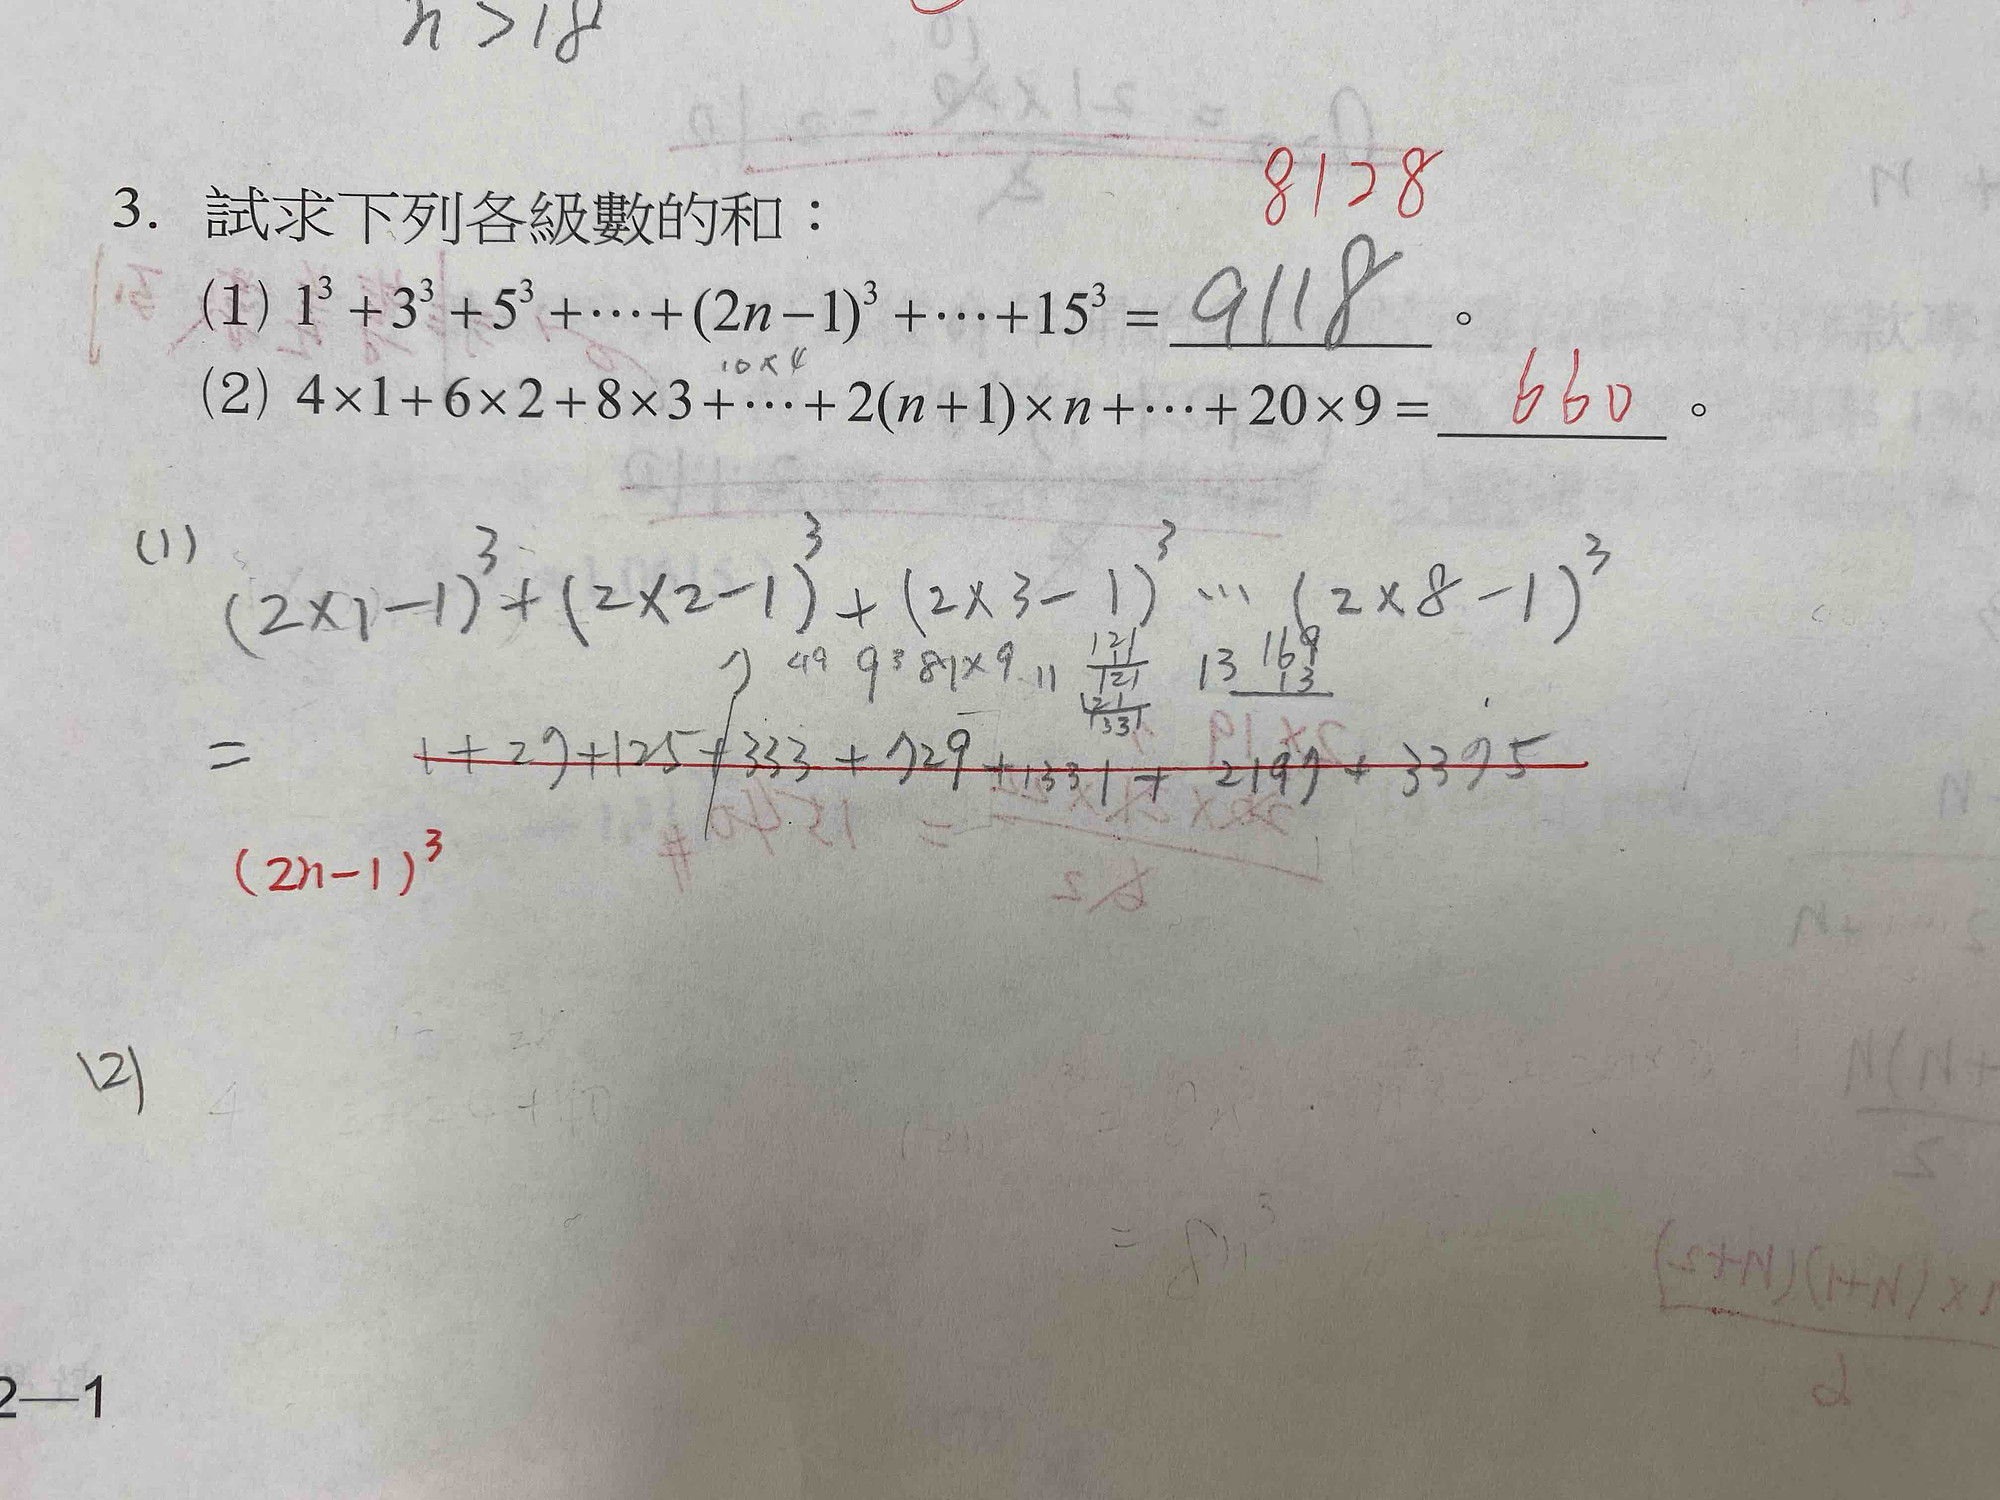 n > 18
3. 試求下列各級數的和：
8128
(1) 1³ + 3³ + 5³ + ⋯ + (2n − 1)³ + ⋯ + 15³ = 9118 。
10 × 4
(2) 4 × 1 + 6 × 2 + 8 × 3 + ⋯ + 2(n + 1) × n + ⋯ + 20 × 9 = 660 。
(1)
(2×1−1)³ + (2×2−1)³ + (2×3−1)³ ⋯ (2×8−1)³
7 49 9³ 81×9 11 121 13 169
11 13
121
121
1331
= 1+27+125+333+729+1331+2197+3375
(2n−1)³
(2)
= 8n³
2—1